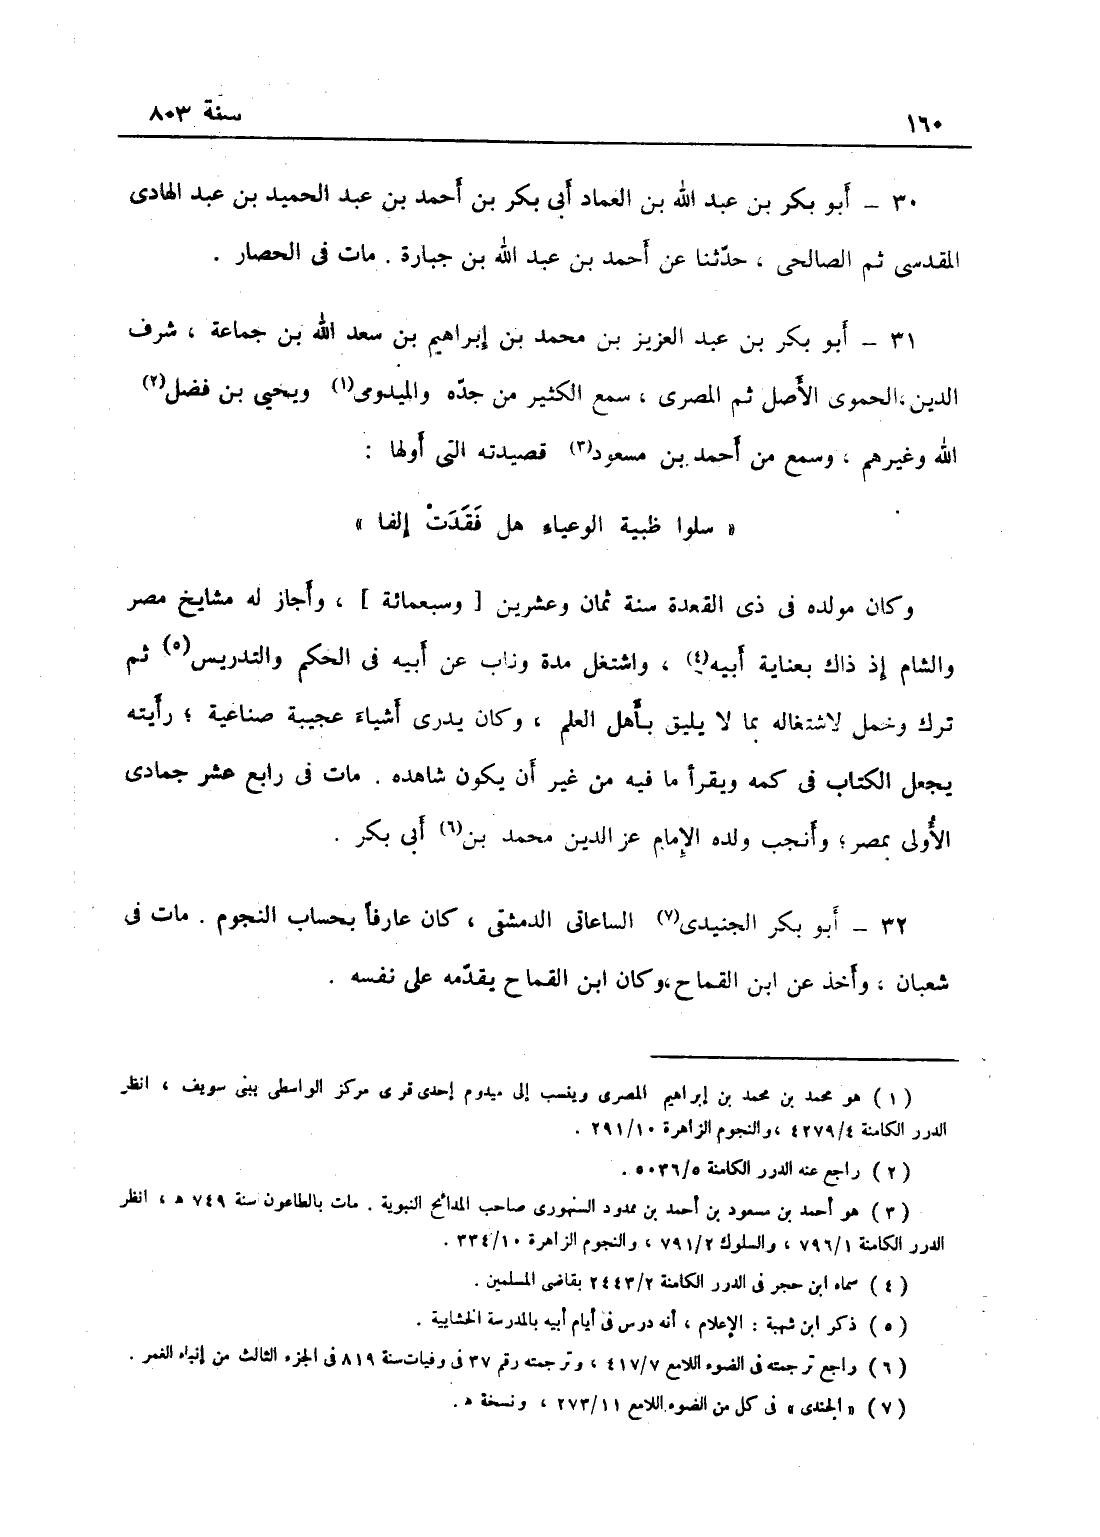 ١٦٠
سنة ٨٠٣
٣٠ – أبو بكر بن عبد الله بن العماد أبي بكر بن أحمد بن عبد الحميد بن عبد الهادى
المقدسى ثم الصالحى ، حدّثنا عن أحمد بن عبد الله بن جبارة . مات فى الحصار .
٣١ – أبو بكر بن عبد العزيز بن محمد بن إبراهيم بن سعد الله بن جماعة ، شرف
الدين ،الحموى الأصل ثم المصرى ، سمع الكثير من جدّه والميدومى(١) ويحيى بن فضل(٢)
الله وغيرهم ، وسمع من أحمد بن مسعود(٣) قصيدته التى أولها :
« سلوا ظبية الوعياء هل فَقَدَتْ إلفا »
وكان مولده فى ذى القعدة سنة ثمان وعشرين [ وسبعمائة ] ، وأجاز له مشايخ مصر
والشام إذ ذاك بعناية أبيه(٤) ، واشتغل مدة وناب عن أبيه فى الحكم والتدريس(٥) ثم
ترك وخمل لاشتغاله بما لا يليق بأهل العلم ، وكان يدرى أشياءَ عجيبة صناعية ؛ رأيته
يجعل الكتاب فى كمه ويقرأ ما فيه من غير أن يكون شاهده . مات فى رابع عشر جمادى
الأُولى بمصر؛ وأنجب ولده الإمام عز الدين محمد بن(٦) أبى بكر .
٣٢ – أبو بكر الجنيدى(٧) الساعاتى الدمشقى ، كان عارفاً بحساب النجوم . مات فى
شعبان ، وأخذ عن ابن القماح ،وكان ابن القماح يقدّمه على نفسه .
( ١ ) هو محمد بن محمد بن إبراهيم المصرى وينسب إلى ميدوم إحدى قرى مركز الواسطى ببنى سويف ، انظر
الدرر الكامنة ٤/٤٢٧٩ ،والنجوم الزاهرة ١٠/٢٩١ .
( ٢ ) راجع عنه الدرر الكامنة ٥/٥٠٣٦ .
( ٣ ) هو أحمد بن مسعود بن أحمد بن ممدود السنهورى صاحب المدائح النبوية . مات بالطاعون سنة ٧٤٩ هـ ، انظر
الدرر الكامنة ١/٧٩٦ ، والسلوك ٢/٧٩١ ، والنجوم الزاهرة ١٠/٣٣٤ .
( ٤ ) سماه ابن حجر فى الدرر الكامنة ٢/٢٤٤٣ بقاضى المسلمين .
( ٥ ) ذكر ابن شهبة : الإعلام ، أنه درس فى أيام أبيه بالمدرسة الخشابية .
( ٦ ) راجع ترجمته فى الضوء اللامع ٧/٤١٧ ، وترجمته رقم ٣٧ فى وفيات سنة ٨١٩ فى الجزء الثالث من إنباء الغمر .
( ٧ ) « الجندى » فى كل من الضوء اللامع ١١/٢٧٣ ، ونسخة هـ .